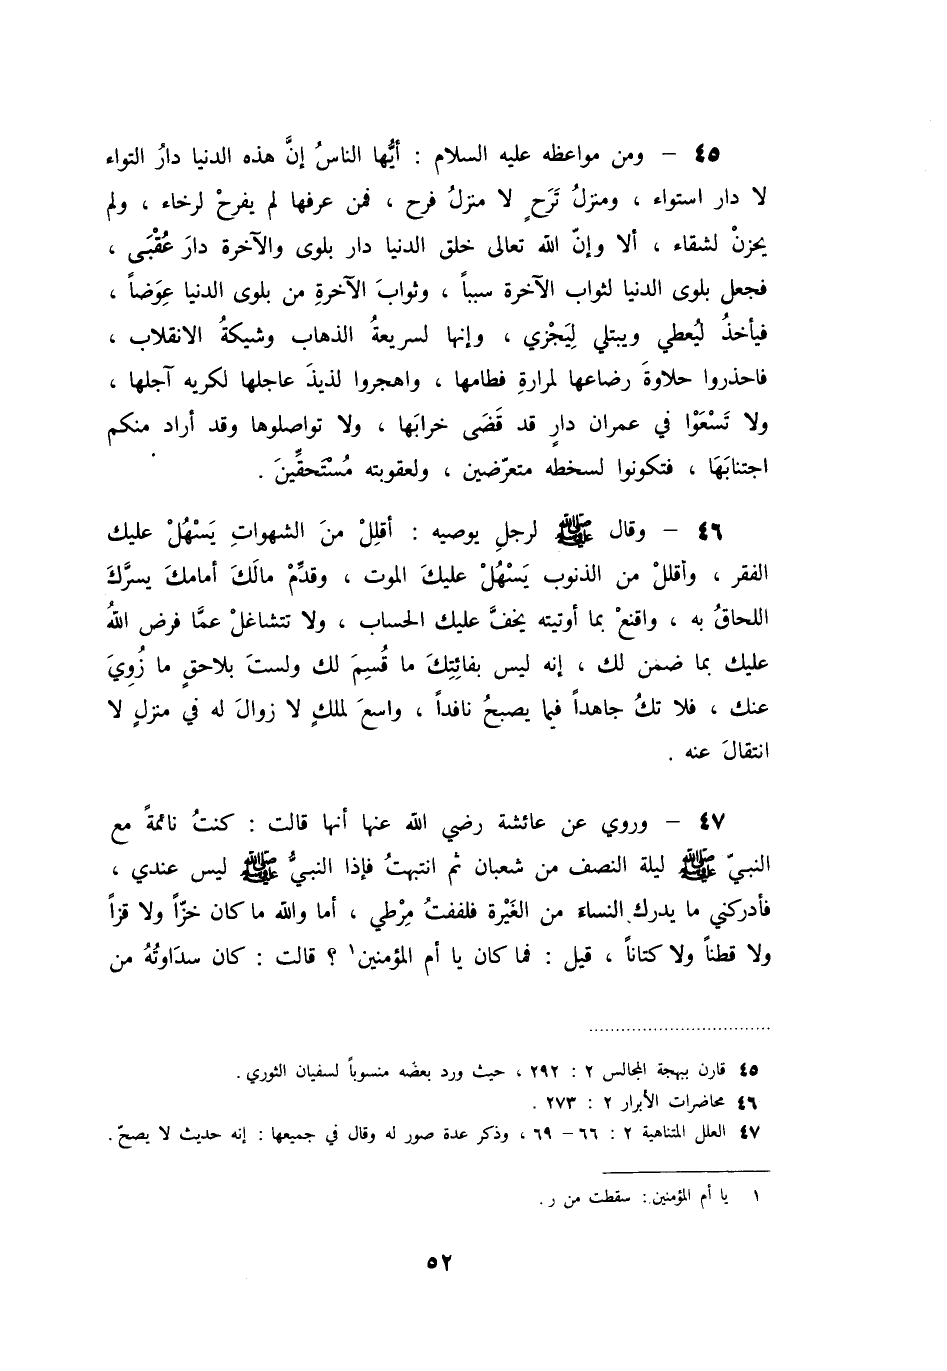 ٤٥ – ومن مواعظه عليه السلام : أيُّها الناسُ إنَّ هذه الدنيا دارُ التواء
لا دار استواء ، ومنزلُ تَرَحٍ لا منزلُ فرح ، فمن عرفها لم يفرحْ لرخاء ، ولم
يحزنْ لشقاء ، ألا وإنّ الله تعالى خلق الدنيا دار بلوى والآخرة دارَ عُقْبَى ،
فجعل بلوى الدنيا لثواب الآخرة سبباً ، وثوابَ الآخرةِ من بلوى الدنيا عِوَضاً ،
فيأخذُ ليُعطي ويبتلي لِيَجْزي ، وإنها لسريعةُ الذهاب وشيكةُ الانقلاب ،
فاحذروا حلاوةَ رضاعها لمرارةِ فطامها ، واهجروا لذيذَ عاجلها لكريه آجلها ،
ولا تَسْعَوْا في عمران دارٍ قد قَضَى خرابَها ، ولا تواصلوها وقد أراد منكم
اجتنابَهَا ، فتكونوا لسخطه متعرّضين ، ولعقوبته مُسْتَحقِّينَ .
٤٦ – وقال ﷺ لرجلٍ يوصيه : أقلِلْ منَ الشهواتِ يَسْهُلْ عليك
الفقر ، وأقللْ من الذنوب يَسْهُلْ عليكَ الموت ، وقدِّمْ مالَكَ أمامكَ يسرَّكَ
اللحاقُ به ، واقنعْ بما أوتيته يخفَّ عليك الحساب ، ولا تتشاغلْ عمَّا فرض اللهُ
عليك بما ضمن لك ، إنه ليس بفائِتِكَ ما قُسِمَ لك ولستَ بلاحقٍ ما زُوِيَ
عنك ، فلا تكُ جاهداً فيما يصبحُ نافداً ، واسعَ لملكٍ لا زوالَ له في منزلٍ لا
انتقالَ عنه .
٤٧ – وروي عن عائشة رضي الله عنها أنها قالت : كنتُ نائمةً مع
النبيّ ﷺ ليلة النصف من شعبان ثم انتبهتُ فإذا النبيُّ ﷺ ليس عندي ،
فأدركني ما يدرك النساءَ من الغَيْرة فلففتُ مِرْطي ، أما والله ما كان خزّاً ولا قزاً
ولا قطناً ولا كتاناً ، قيل : فما كان يا أم المؤمنين١ ؟ قالت : كان سدَاوتُهُ من
٤٥ قارن ببهجة المجالس ٢ : ٢٩٢ ، حيث ورد بعضه منسوباً لسفيان الثوري .
٤٦ محاضرات الأبرار ٢ : ٢٧٣ .
٤٧ العلل المتناهية ٢ : ٦٦ – ٦٩ ، وذكر عدة صور له وقال في جميعها : إنه حديث لا يصحّ .
١ يا أم المؤمنين : سقطت من ر .
٥٢